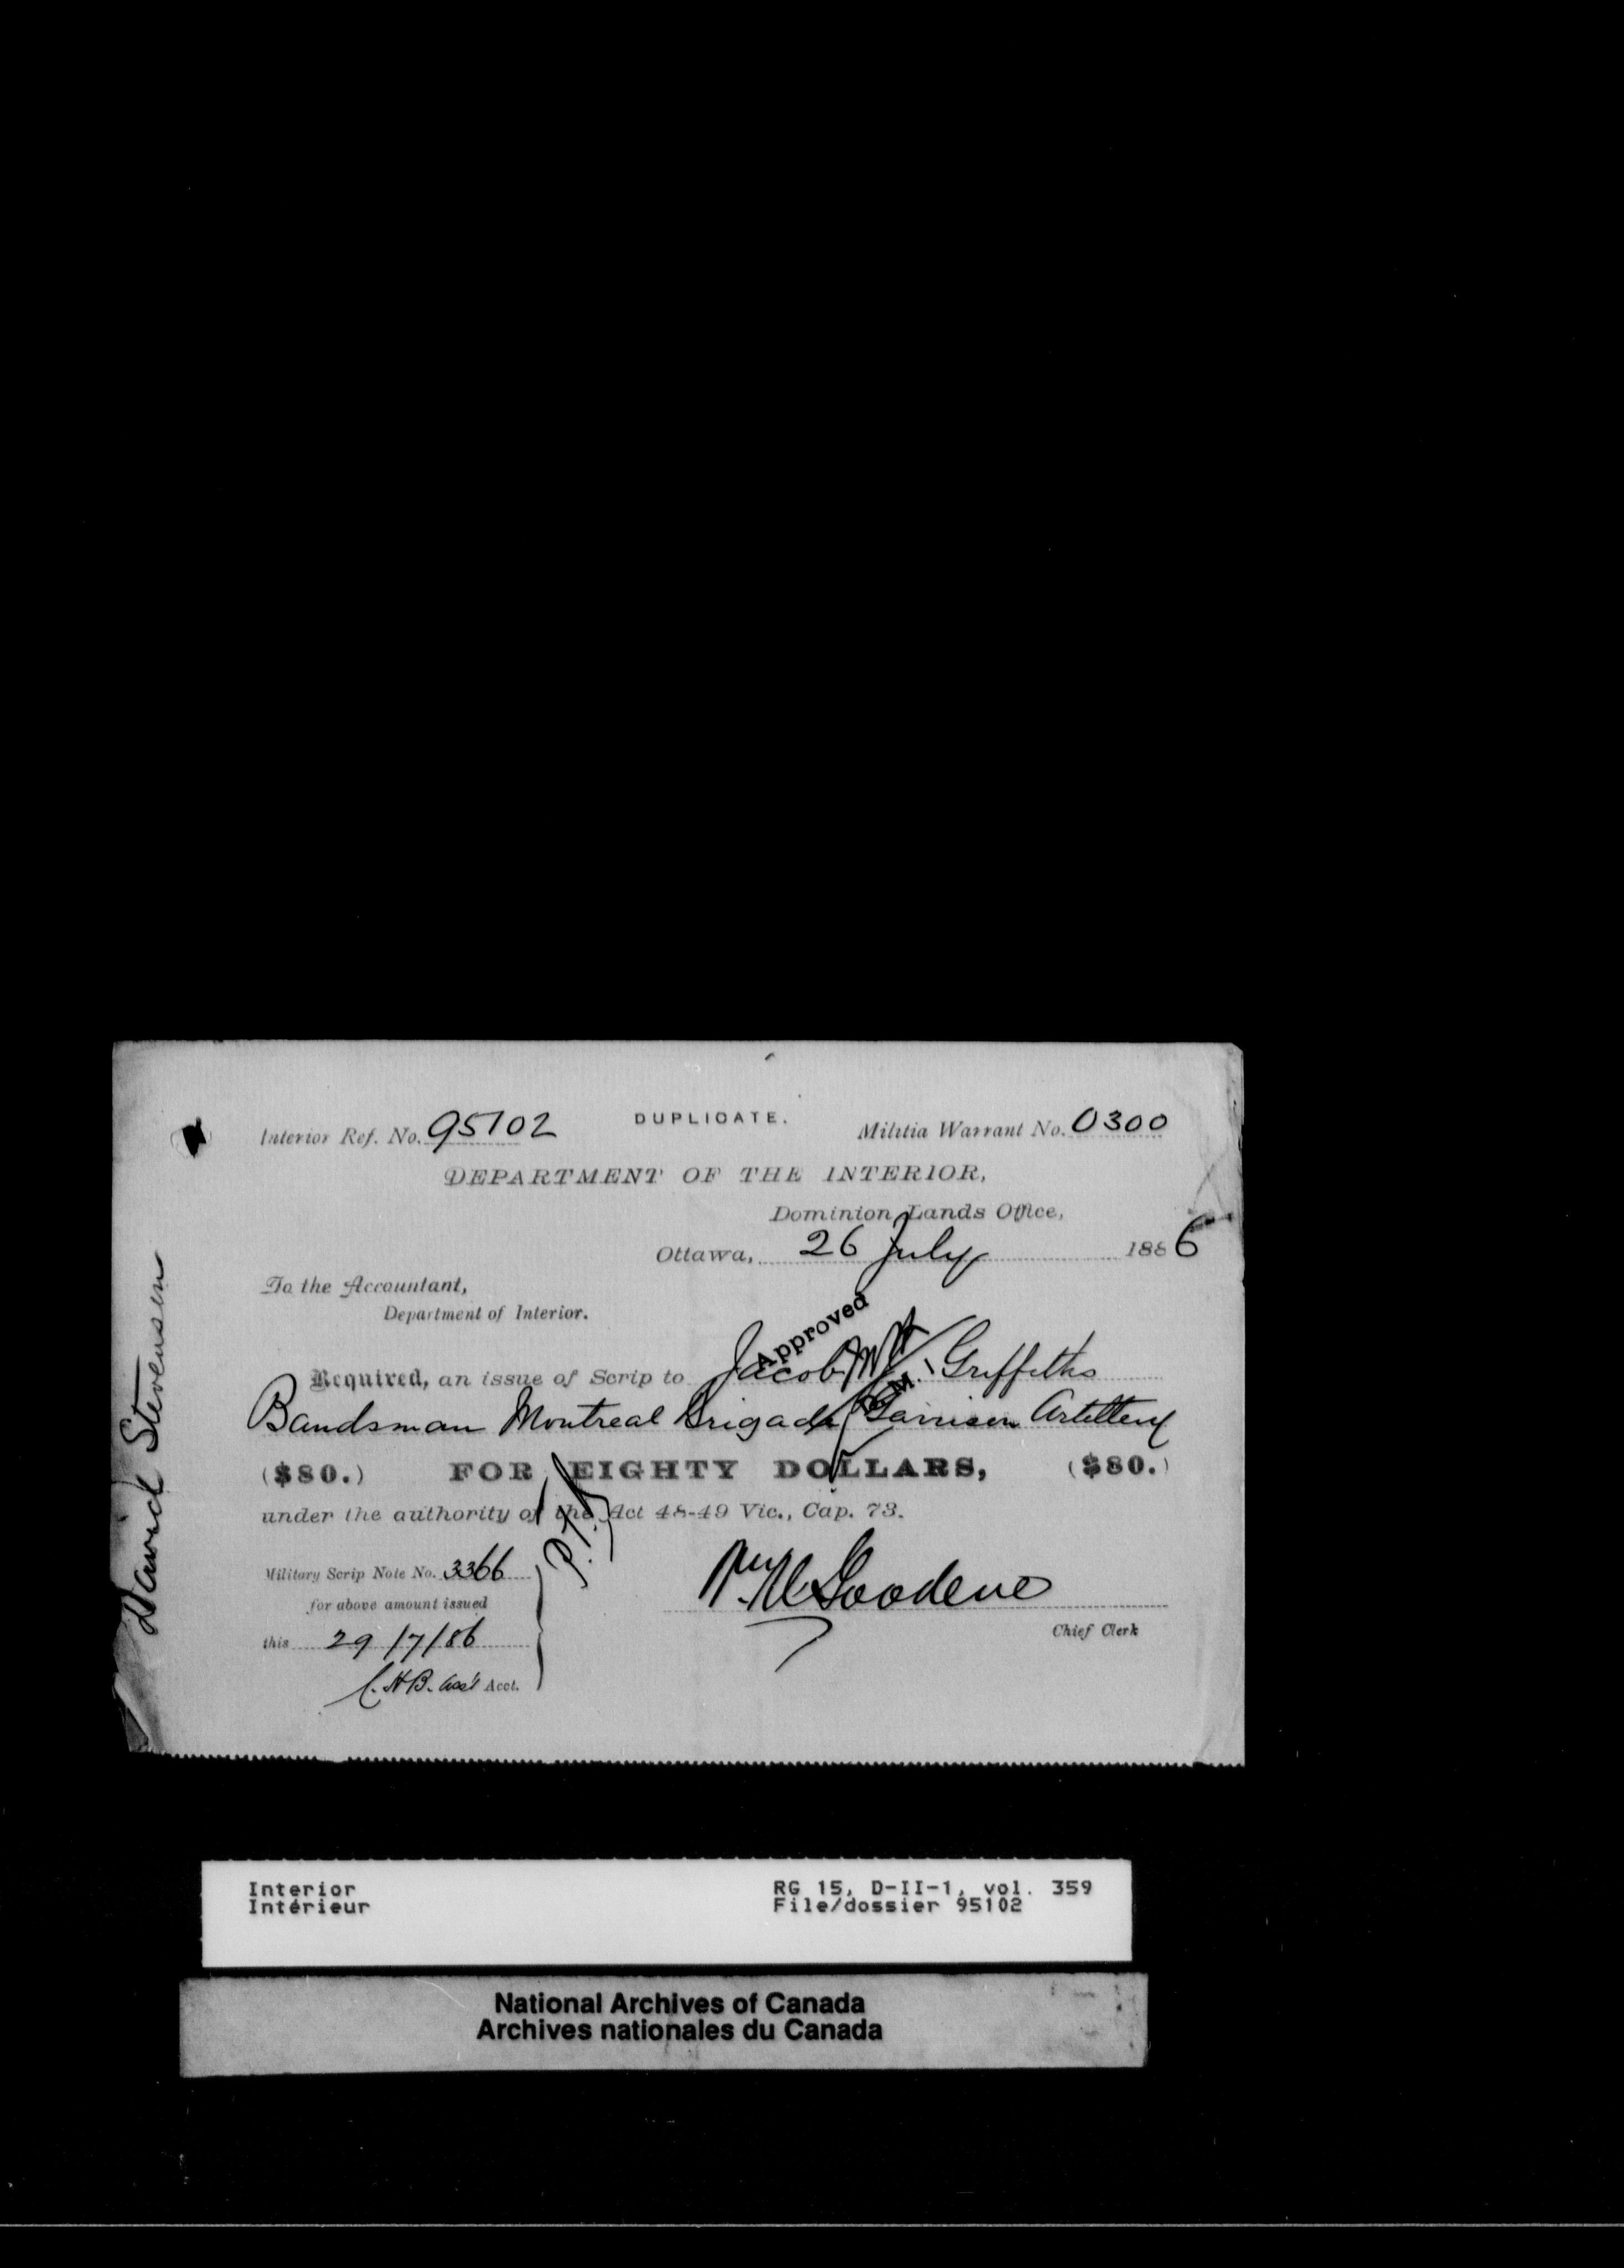 Interior Ref. No. 95102 DUPLICATE. Militia Warrant No. 0300
DEPARTMENT OF THE INTERIOR,
Dominion Lands Office,
Ottawa, 26 July 1886
To the Accountant,
Department of Interior.
Approved
Required, an issue of Scrip to Jacob Griffiths
Bandsman Montreal Brigade Garrison Artillery
($80.) FOR EIGHTY DOLLARS, ($80.)
under the authority of the Act 48-49 Vic., Cap. 73.
Military Scrip Note No. 3366
for above amount issued
this 29/7/86
Chief Clerk
C.H.B. Acct.
David Stevenson
Interior
Intérieur
RG 15, D-II-1, vol. 359
File/dossier 95102
National Archives of Canada
Archives nationales du Canada